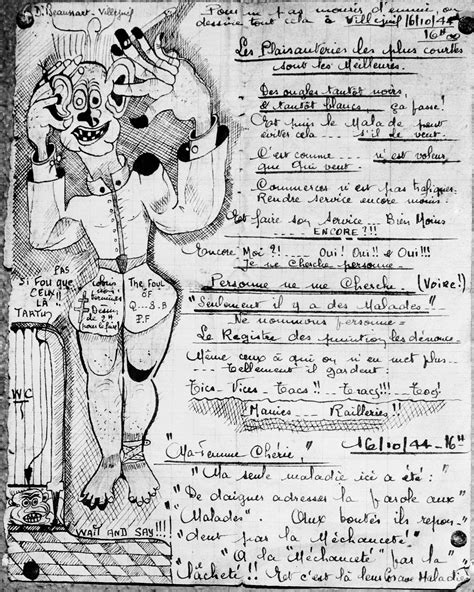 D. Beausart - Villejuif
Pour ne pas mourir d'ennui, on
dessine tout cela à Villejuif 16/10/44
16H
Les Plaisanteries les plus courtes
sont les Meilleures.
Des ongles tantôt noirs,
& tantôt blancs ça passe!
Et puis le Malade peut
éviter cela ---- s'il le veut.
C'est comme ---- n'est voleur,
que qui veut.
Commercer n'est pas trafiquer.
Rendre service encore moins.
Et faire son service -- Bien Moins
---- ENCORE ?!!
Encore Moi ?!.. Oui! Oui!! & Oui!!!
Je me Cherche personne.
Personne ne me Cherche. (Voire!)
"Seulement il y a des Malades"
Ne nommons personne =
Le Registre des punitions les dénonce
Même ceux à qui on n'en met plus
---- Tellement il gardent:
Tics - Vices - Tacs!! -- Tracs!!! -- Tocs!
Manies -- Railleries!!
PAS
SI FOU QUE
CEUX!!
LÀ
TARTUF
The Foul
OF
Q---S.B
P.F
WC
WAIT AND SAY!!!
16/10/44-16H
"Ma Femme Chérie,"
"Ma seule maladie ici a été:"
"De daigner adresser la parole aux"
"Malades". Aux boutés ils repon-"
"dent par la Méchanceté"
"A la "Méchanceté" par la"
"lâcheté!! Et c'est là leur Maladie